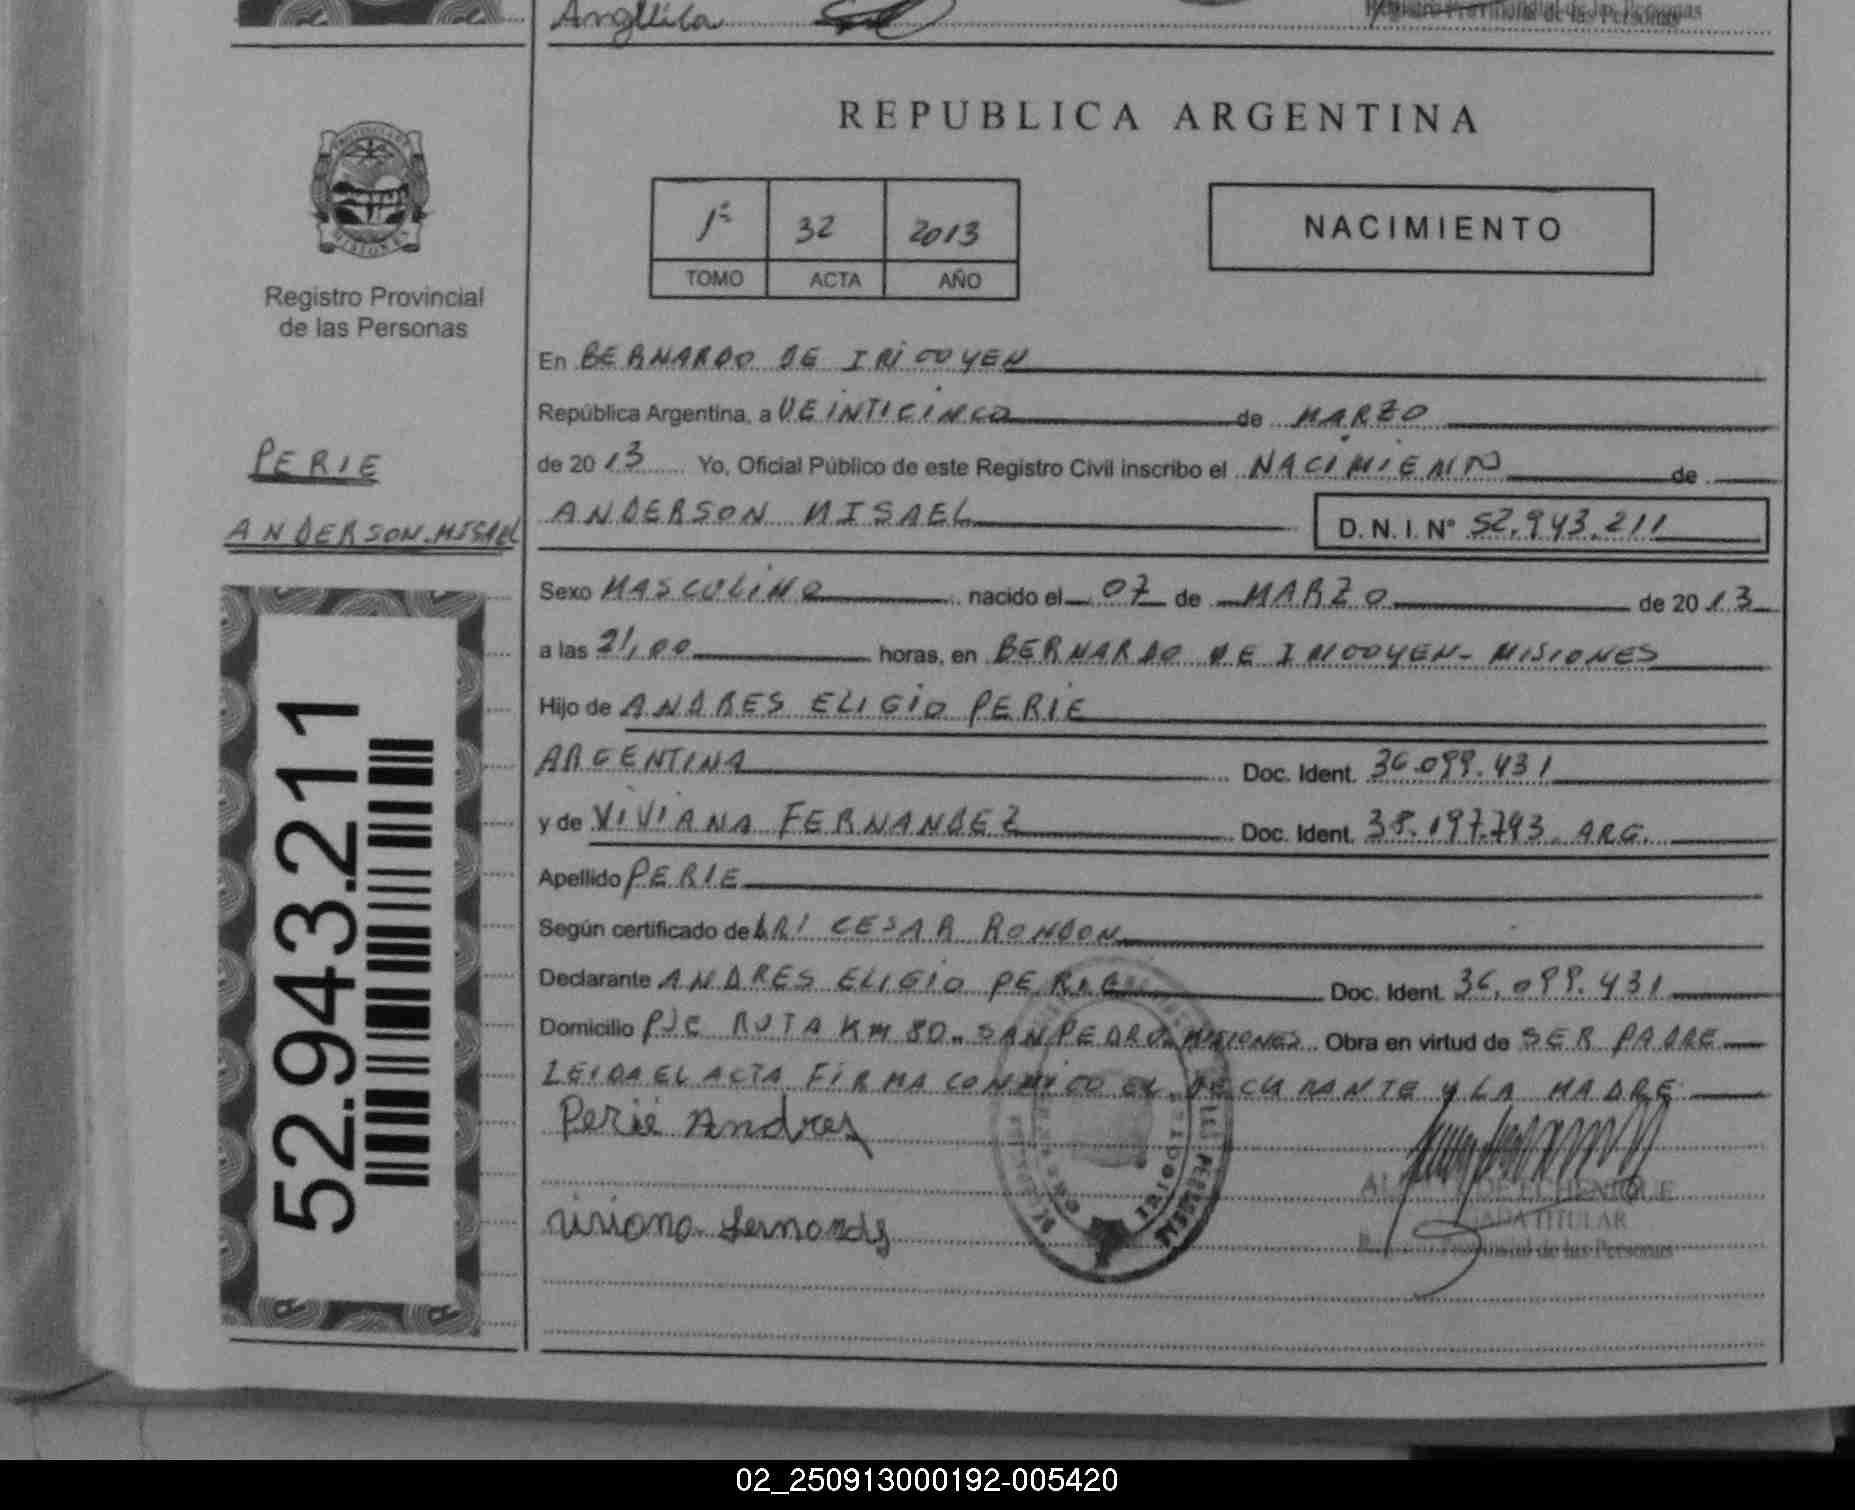 Angélica
Registro Provincial de las Personas
REPUBLICA ARGENTINA
PROVINCIA DE
MISIONES
Registro Provincial
de las Personas
1º 32 2013
TOMO ACTA AÑO
NACIMIENTO
En BERNARDO DE IRIGOYEN
República Argentina, a VEINTICINCO de MARZO
de 20 13 Yo, Oficial Público de este Registro Civil inscribo el NACIMIENTO de
PERIE
ANDERSON MISAEL
ANDERSON MISAEL D. N. I. Nº 52.943.211
Sexo MASCULINO nacido el 07 de MARZO de 20 13
a las 21,00 horas, en BERNARDO DE IRIGOYEN- MISIONES
Hijo de ANDRES ELIGIO PERIE
ARGENTINA Doc. Ident. 36.099.431
y de VIVIANA FERNANDEZ Doc. Ident. 38.197.793 ARG.
Apellido PERIE
Según certificado de CESAR RONDON
Declarante ANDRES ELIGIO PERIE Doc. Ident. 36.099.431
Domicilio PJE RUTA KM 80- SAN PEDRO- MISIONES Obra en virtud de SER PADRE
LEIDA EL ACTA FIRMA CONMIGO EL DECLARANTE Y LA MADRE
Perié Andres
viviana fernandez
52.943.211
DE ECHENIQUE
TITULAR
Provincial de las Personas
02_250913000192-005420